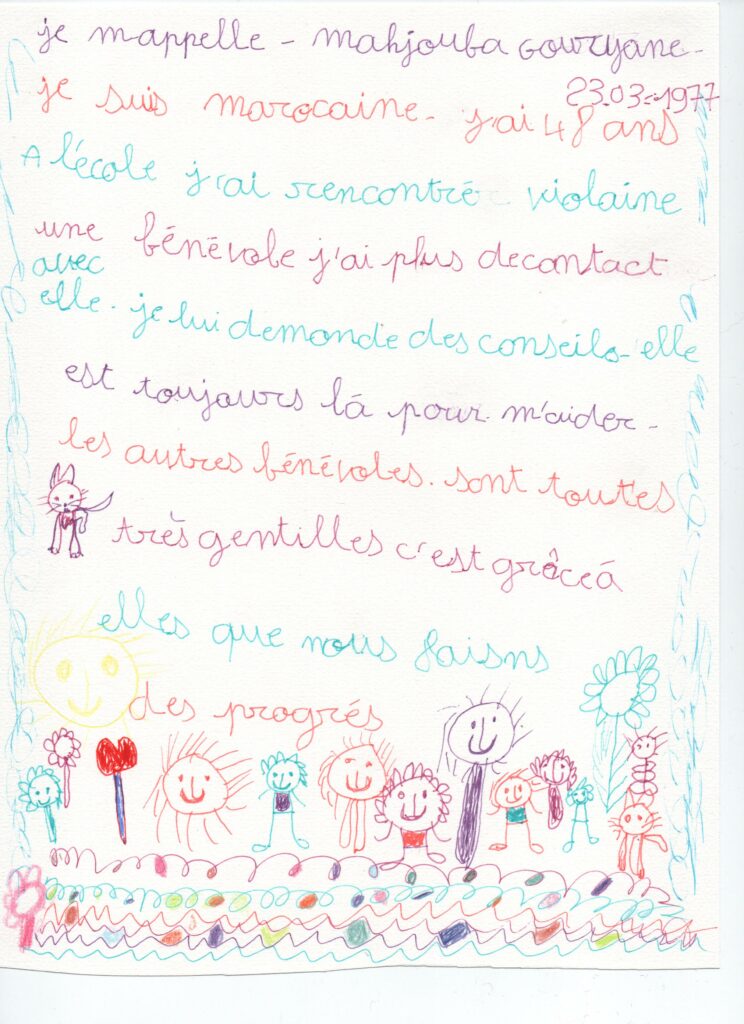 je m'appelle - mahjouba Gouryane -
23.03.1977
je suis marocaine - j'ai 48 ans
A l'école j'ai rencontré violaine
une bénévole j'ai plus decontact
avec
elle. je lui demande des conseils - elle
est toujours lá pour m'aider -
les autres bénévoles. sont toutes
très gentilles c'est grâceá
elles que nous faisns
des progrés